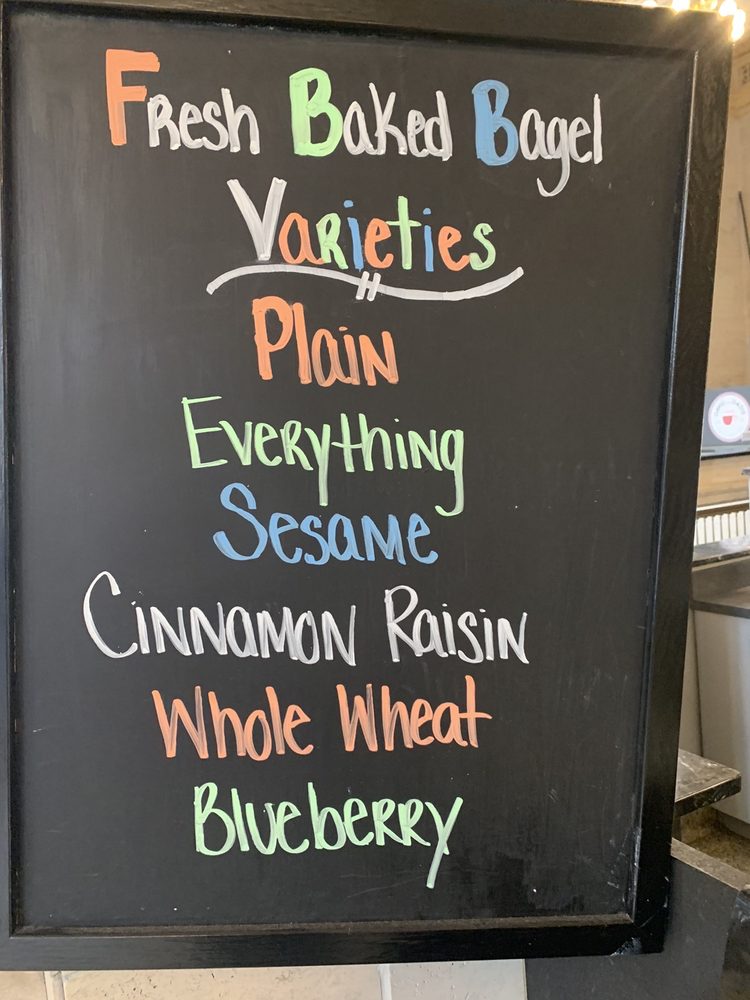 Fresh Baked Bagel
Varieties
Plain
Everything
Sesame
Cinnamon Raisin
Whole Wheat
Blueberry